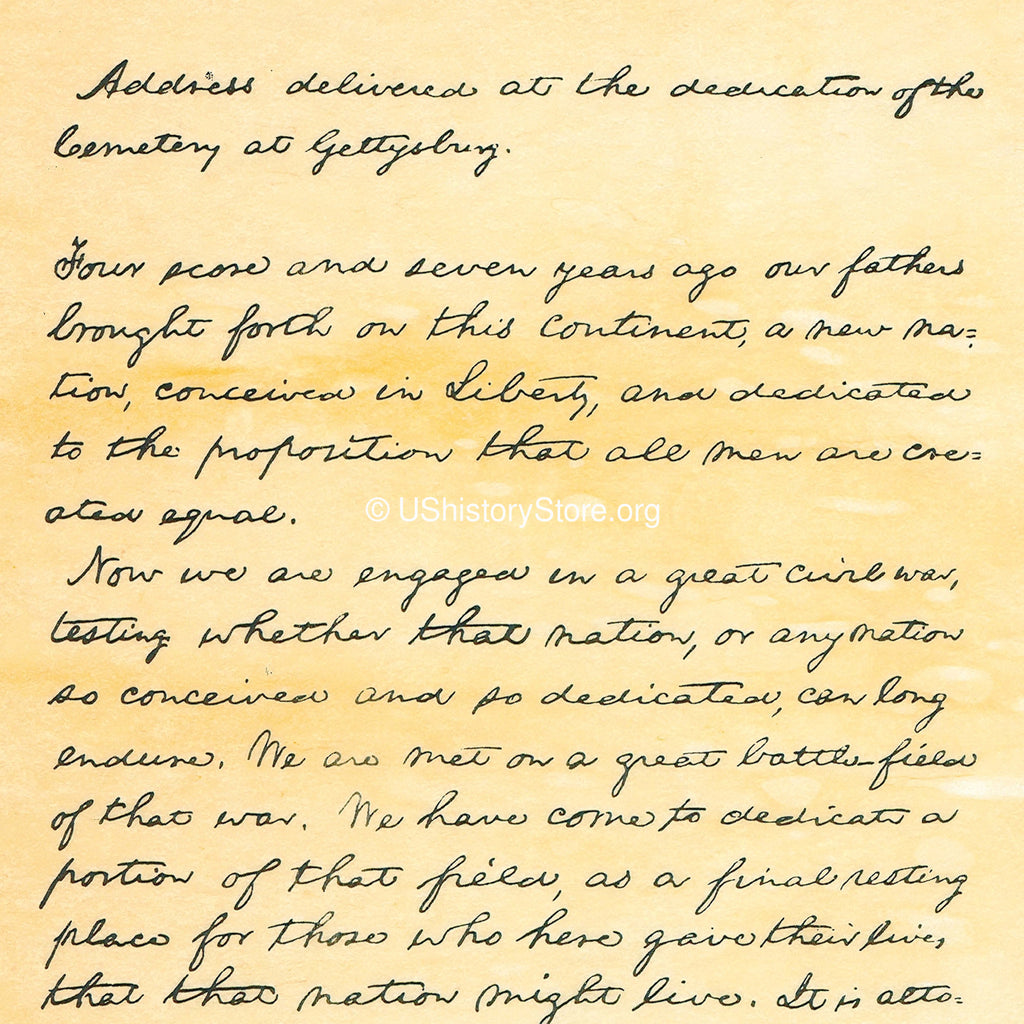 Address delivered at the dedication of the
Cemetery at Gettysburg.
Four score and seven years ago our fathers
brought forth on this continent, a new na=
tion, conceived in Liberty, and dedicated
to the proposition that all men are cre=
ated equal.
© UShistoryStore.org
Now we are engaged in a great civil war,
testing whether that nation, or any nation
so conceived and so dedicated, can long
endure. We are met on a great battle-field
of that war. We have come to dedicate a
portion of that field, as a final resting
place for those who here gave their lives
that that nation might live. It is alto=